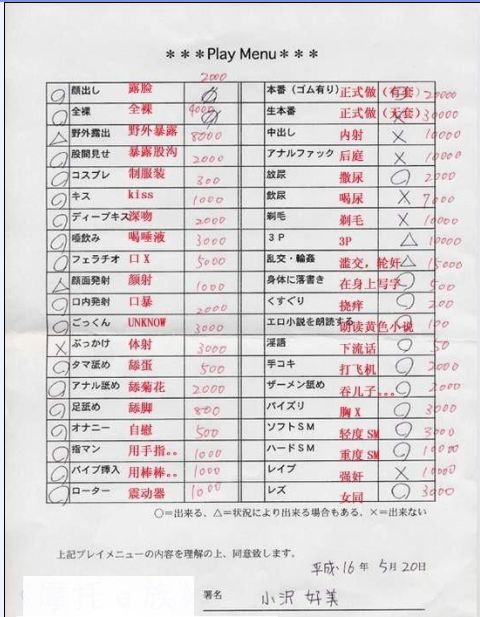 ***Play Menu***
2000
○ 顔出し 露脸
○ 全裸 全裸 4000
△ 野外露出 野外暴露 8000
○ 股間見せ 暴露股沟 2000
○ コスプレ 制服装 300
○ キス kiss 1000
○ ディープキス 深吻 2000
○ 唾飲み 喝唾液 3000
○ フェラチオ 口X 5000
△ 顔面発射 颜射 1000
○ 口内発射 口暴 2000
○ ごっくん UNKNOW 3000
× ぶっかけ 体射 3000
○ タマ舐め 舔蛋 500
○ アナル舐め 舔菊花 2000
○ 足舐め 舔脚 800
○ オナニー 自慰 500
○ 指マン 用手指.. 1000
○ バイブ挿入 用棒棒.. 1000
○ ローター 震动器 1000
本番（ゴム有り） 正式做（有套） 20000
生本番 正式做（无套） × 30000
中出し 内射 × 10000
アナルファック 后庭 × 10000
放尿 撒尿 ○ 2000
飲尿 喝尿 × 7000
剃毛 剃毛 × 10000
３Ｐ 3P △ 10000
乱交・輪姦 滥交，轮奸 △ 15000
身体に落書き 在身上写字 ○ 500
くすぐり 挠痒 ○ 200
エロ小説を朗読する 朗读黄色小说 100
淫語 下流话 ○ 50
手コキ 打飞机 ○ 2000
ザーメン舐め 吞儿子... ○ 2000
パイズリ 胸X ○ 3000
ソフトＳＭ 轻度SM ○ 3000
ハードＳＭ 重度SM ○ 10000
レイプ 强奸 × 10000
レズ 女同 ○ 3000
○=出来る、△=状況により出来る場合もある、×=出来ない
上記プレイメニューの内容を理解の上、同意致します。
平成16年 5月20日
署名 小沢 好美